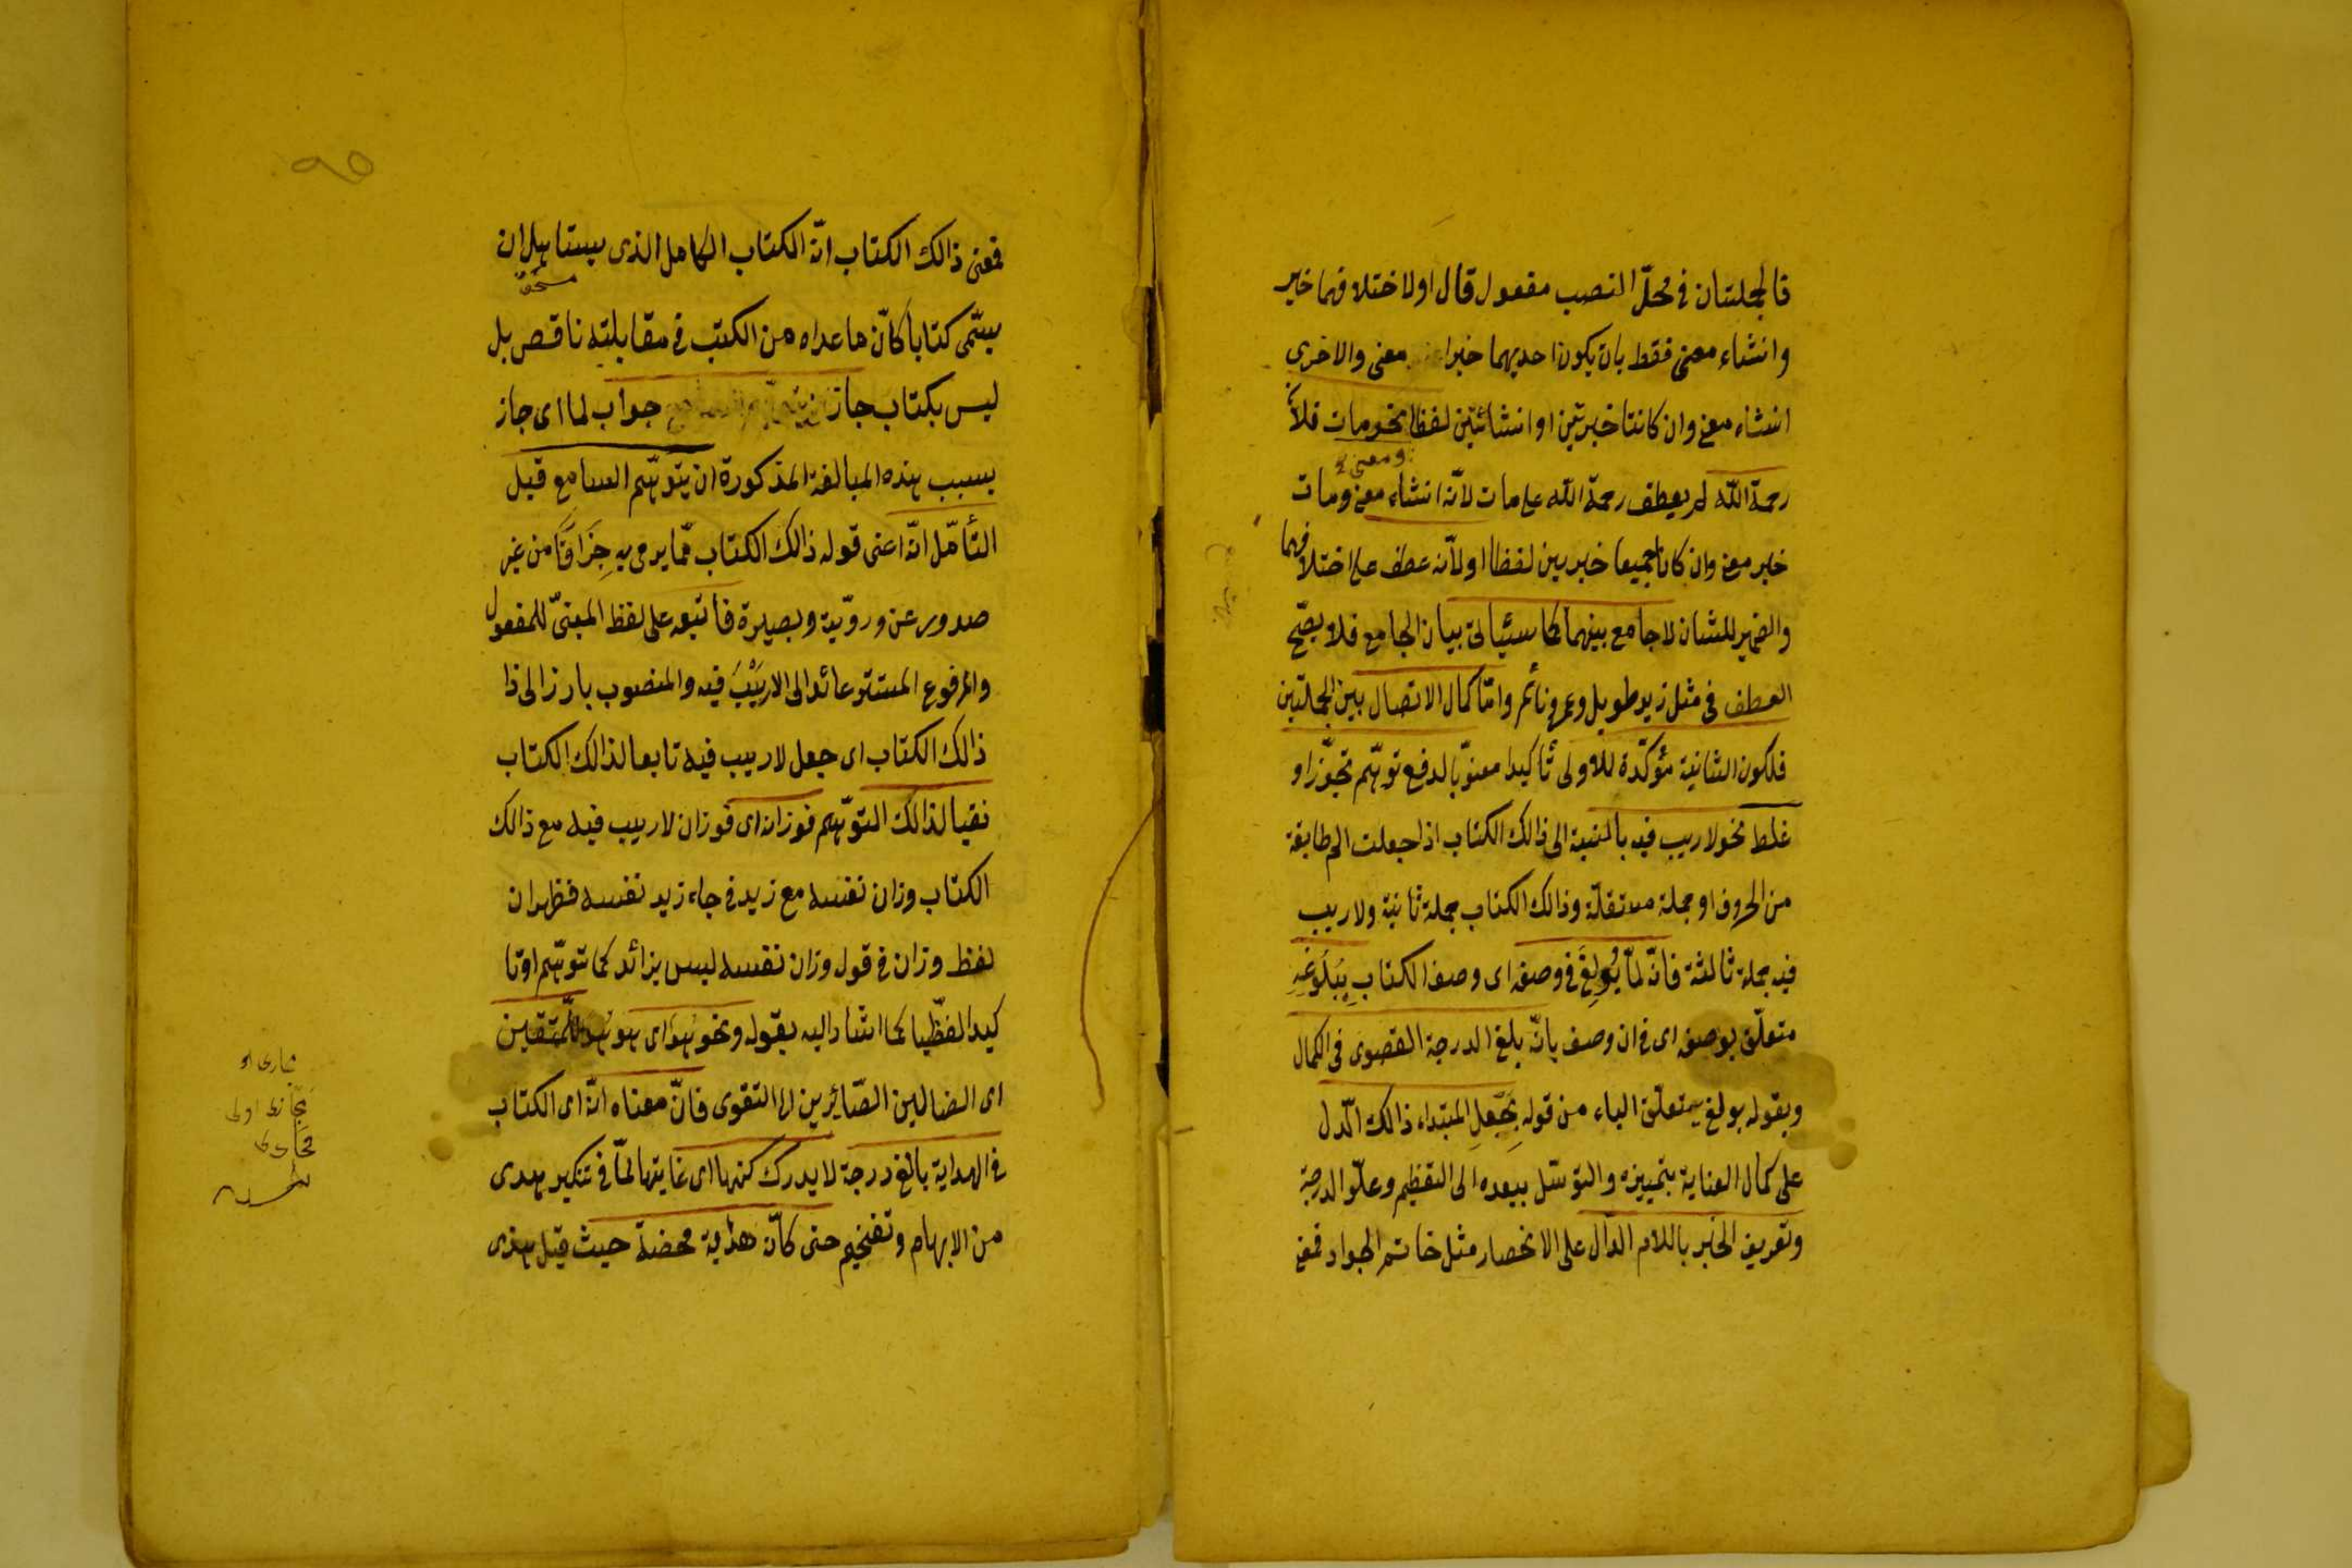 فالجملتان في محلّ النصب مفعول قال او لاختلافهما خبر
وانشاء معنى فقط بان يكون احديهما خبرا معنى والاخرى
انشاء معنى وان كانتا خبريتين او انشائيتين لفظا نحو مات فلان
رحمة الله لم يعطف رحمة الله على مات لانّه انشاء معنى ومات
ومعنى
خبر معنى وان كانا جميعا خبريين لفظا او لانّه عطف على اختلافهما
والضمير للشان لا جامع بينهما كما سيأتى بيان الجامع فلا يصّح
العطف فى مثل زيد طويل وعمرو نائم وامّا كمال الاتصال بين الجملتين
فلكون الثانية مؤكدّة للاولى تأكيدا معنويّا لدفع توهّم تجوّز او
غلط نحو لا ريب فيه بالنسبة الى ذالك الكتاب اذا جعلت الم طايفة
من الحروف او جملة مستقلّة وذالك الكتاب جملة ثانية ولا ريب
فيه جملة ثالثة فانّه لمّا بُولِغَ فى وصفه اى وصف الكتاب بِبُلُوغِهِ
متعلّق بوصفه اى فى ان وصف بانّه بلغ الدرجة القصوى فى الكمال
وبقوله بولغ يتعلّق الباء من قوله بِجَعْلِ المبتداء ذالك الّدال
على كمال العناية بتمييزه والتوسّل ببعده الى التعظيم وعلّو الدرجة
وتعريف الخبر باللام الدّال على الانحصار مثل حاتم الجواد فمعنى
فمعنى ذالك الكتاب انّه الكتاب الكامل الذى يستاهل ان
مستحق
يسّمى كتابا كانّ ما عداه من الكتب فى مقابلته ناقص بل
ليس بكتاب جاز جواب لما اى جاز
بسبب هذه المبالغة المذكورة ان يتوهّم السامع قبل
التأمّل انّه اعنى قوله ذالك الكتاب ممّا يرمى به جِزَافًا من غير
صدور عن رويّة وبصيرة فاتبعه على لفظ المبنىّ للمفعول
والمرفوع المستتر عائد الى لا ريْبَ فيه والمنصوب بارز الى ذا
ذالك الكتاب اى جعل لا ريب فيه تابعا لذالك الكتاب
نفيا لذالك التوهّم فوزانه اى فوزان لا ريب فيه مع ذالك
الكتاب وزان نفسه مع زيد فى جاء زيد نفسه فظهر ان
لفظ وزان فى قول وزان نفسه ليس بزائد كما توهّم او تا
كيدا لفظّيا كما اشار اليه بقوله ونحو هدى اى هو هدى للّمتقين
اى الضالين الصّائرين الى التقوى فانّ معناه انّه اى الكتاب
فى الهداية بالغ درجة لا يدرك كنهها اى غايتها لمّا فى تنكير هدى
من الابهام وتفخيم حتى كانّه هداية محضة حيث قيل هدى